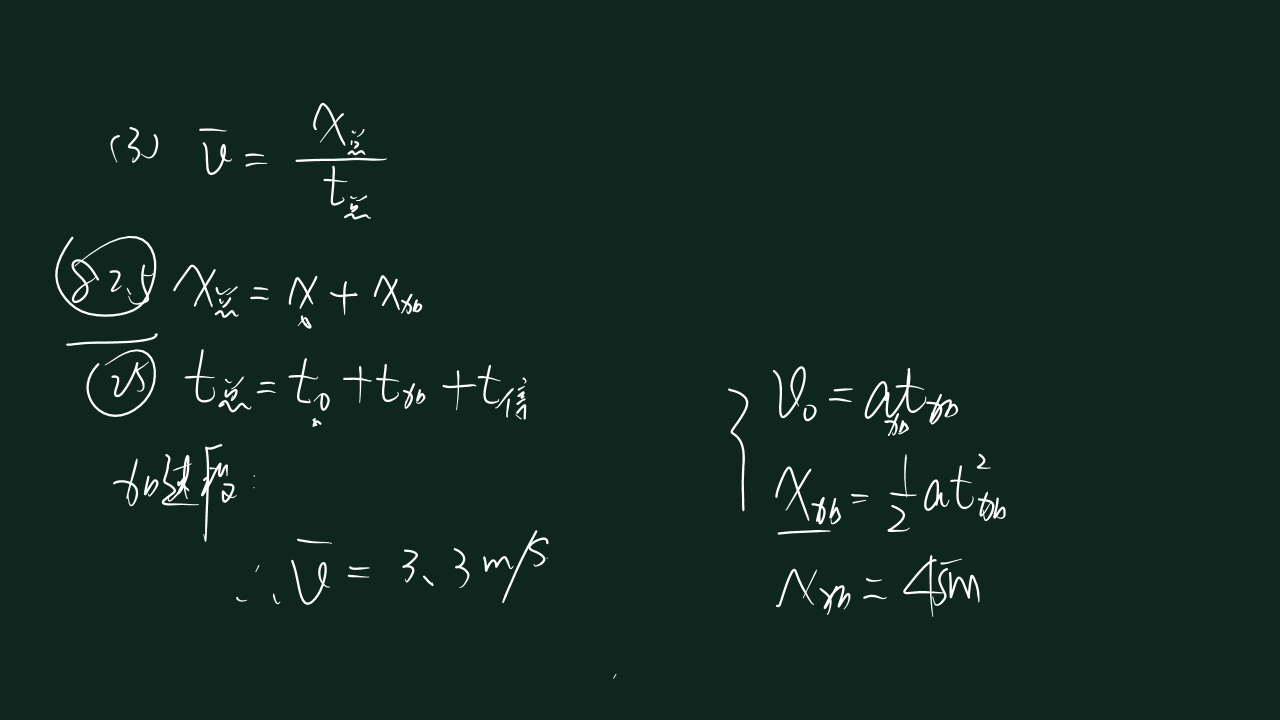 (3) v̄ = x总 / t总
82.5 x总 = x₀ + x加
25 t总 = t₀ + t加 + t停
加速度:
∴ v̄ = 3.3 m/s
v₀ = a加t加
x加 = 1/2 at加²
x加 = 45m